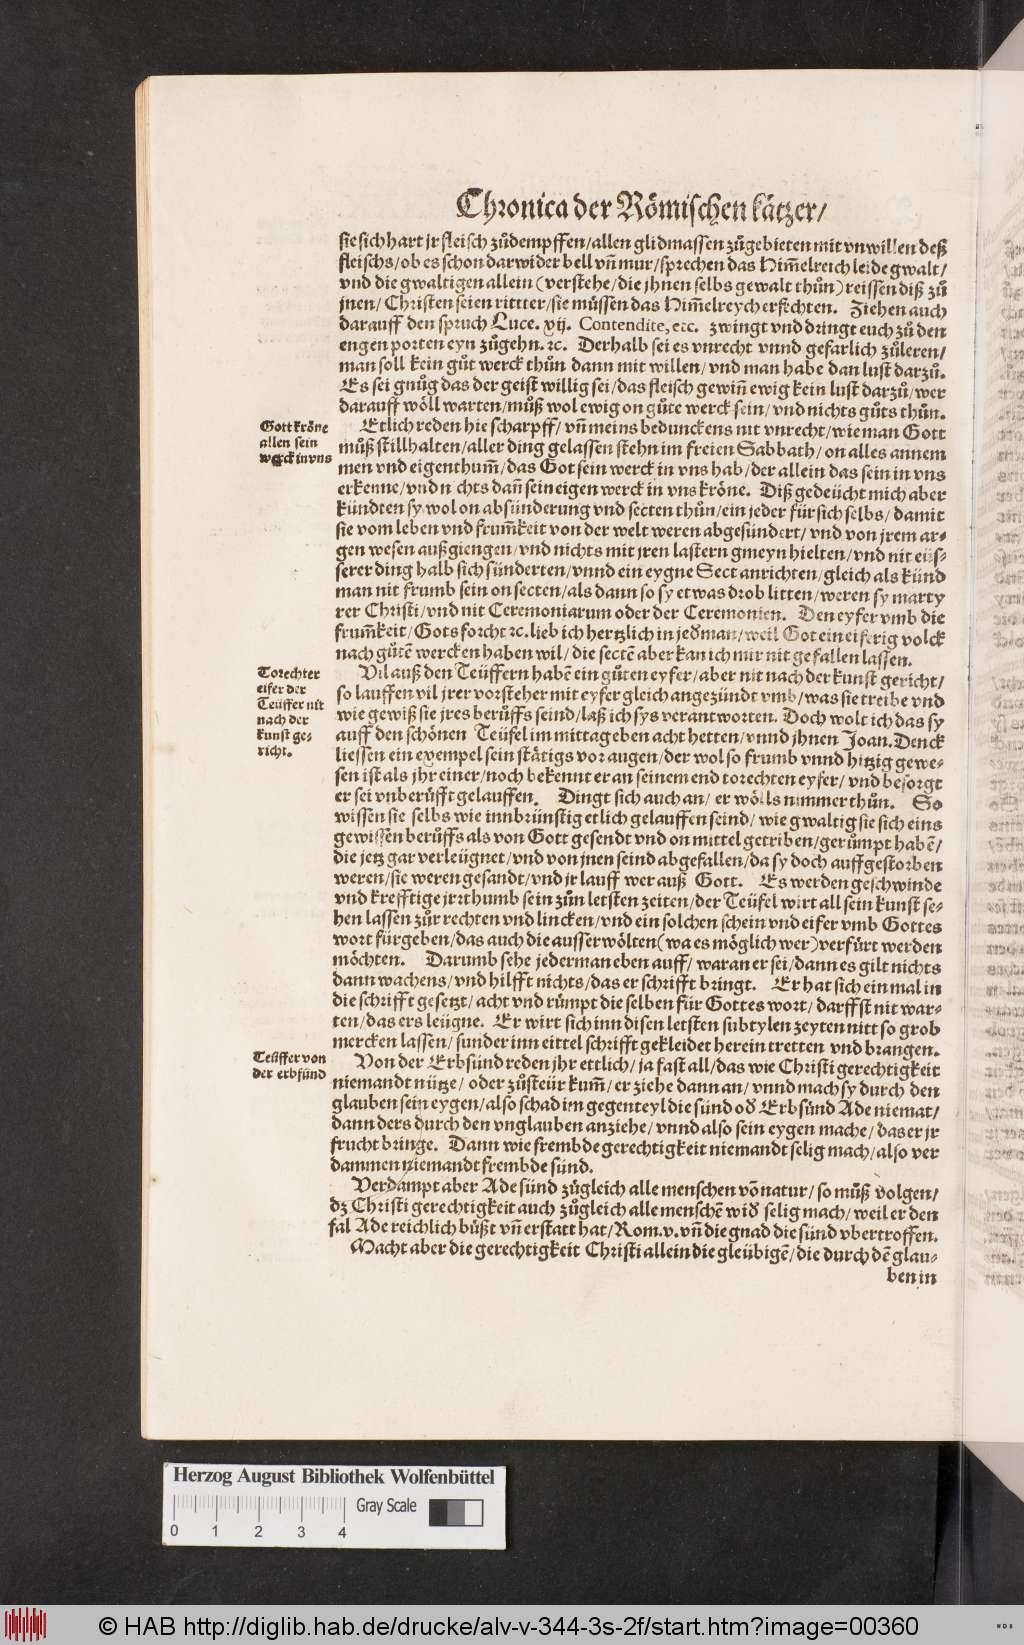 Chronica der Römischen kätzer/
sie sich hart jr fleisch zůdempffen/allen glidmassen zůgebieten mit vnwillen deß
fleischs/ob es schon darwider bell vn̄ mur/sprechen das Him̄elreich leide gwalt/
vnd die gwaltigen allein (verstehe/die jhnen selbs gewalt thůn) reissen diß zů
jnen/ Christen seien rittter/sie müssen das Him̄elreych erfechten. Ziehen auch
darauff den spruch Luce. xij. Contendite, etc. zwingt vnd dringt euch zů den
engen porten eyn zůgehn. ꝛc. Derhalb sei es vnrecht vnnd gefarlich zůleren/
man soll kein gůt werck thůn dann mit willen/vnd man habe dan lust darzů.
Es sei gnůg das der geist willig sei/das fleisch gewin̄ ewig kein lust darzů/wer
darauff wöll warten/můß wol ewig on gůte werck sein/vnd nichts gůts thůn.
Gott kröne
allen sein
werck in vns
Etlich reden hie scharpff/vn̄ meins bedunckens nit vnrecht/wie man Gott
můß stillhalten/aller ding gelassen stehn im freien Sabbath/on alles annem
men vnd eigenthum̄/das Got sein werck in vns hab/der allein das sein in vns
erkenne/vnd nichts dan̄ sein eigen werck in vns kröne. Diß gedeücht mich aber
kündten sy wol on absünderung vnd secten thůn/ein jeder für sich selbs/damit
sie vom leben vnd frum̄keit von der welt weren abgesündert/vnd von jrem ar⸗
gen wesen außgiengen/vnd nichts mit jren lastern gmeyn hielten/vnd nit eüs⸗
serer ding halb sich sünderten/vnnd ein eygne Sect anrichten/gleich als künd
man nit frumb sein on secten/als dann so sy etwas drob litten/weren sy marty
rer Christi/vnd nit Ceremoniarum oder der Ceremonien. Den eyfer vmb die
frum̄keit/Gots forcht ꝛc. lieb ich hertzlich in jedman/weil Got ein eiferig volck
nach gůtē wercken haben wil/die sectē aber kan ich mir nit gefallen lassen.
Torechter
eifer der
Teüffer nit
nach der
kunst ge⸗
richt.
Vil auß den Teüffern habē ein gůten eyfer/aber nit nach der kunst gericht/
so lauffen vil jrer vorsteher mit eyfer gleich angezündt vmb/was sie treibe vnd
wie gewiß sie jres berůffs seind/laß ich sys verantworten. Doch wolt ich das sy
auff den schönen Teüfel im mittag eben acht hetten/vnnd jhnen Joan. Denck
liessen ein exempel sein stätigs vor augen/der wol so frumb vnnd hitzig gewe⸗
sen ist als jhr einer/noch bekennt er an seinem end torechten eyfer/vnd besorgt
er sei vnberůfft gelauffen. Dingt sich auch an/ er wölls nimmer thůn. So
wissen sie selbs wie innbrünstig etlich gelauffen seind/wie gwaltig sie sich eins
gewissen berůffs als von Gott gesendt vnd on mittel getriben/gerůmpt habē/
die jetz gar verleügnet/vnd von jnen seind abgefallen/da sy doch auffgestorben
weren/sie weren gesandt/vnd jr lauff wer auß Gott. Es werden geschwinde
vnd krefftige jrrthumb sein zůn letsten zeiten/der Teüfel wirt all sein kunst se⸗
hen lassen zůr rechten vnd lincken/vnd ein solchen schein vnd eifer vmb Gottes
wort fürgeben/das auch die ausserwölten (wa es möglich wer) verfürt werden
möchten. Darumb sehe jederman eben auff/waran er sei/dann es gilt nichts
dann wachens/vnd hilfft nichts/das er schrifft bringt. Er hat sich ein mal in
die schrifft gesetzt/acht vnd růmpt die selben für Gottes wort/darffst nit war⸗
ten/das ers leügne. Er wirt sich inn disen letsten subtylen zeyten nitt so grob
mercken lassen/sunder inn eittel schrifft gekleidet herein tretten vnd brangen.
Teüffer von
der erbsünd
Von der Erbsünd reden jhr ettlich/ja fast all/das wie Christi gerechtigkeit
niemandt nütze/oder zůsteür kum̄/er ziehe dann an/vnnd mach sy durch den
glauben sein eygen/also schad im gegenteyl die sünd od Erbsünd Ade niemāt/
dann ders durch den vnglauben anziehe/vnnd also sein eygen mache/das er jr
frucht bringe. Dann wie frembde gerechtigkeit niemandt selig mach/also ver
dammen niemandt frembde sünd.
Verdampt aber Ade sünd zůgleich alle menschen vō natur/so můß volgen/
dz Christi gerechtigkeit auch zůgleich alle menschē wid selig mach/weil er den
fal Ade reichlich bůßt vn̄ erstatt hat/Rom. v. vn̄ die gnad die sünd vbertroffen.
Macht aber die gerechtigkeit Christi allein die gleübigē/die durch dē glau⸗
ben in
Herzog August Bibliothek Wolfenbüttel
0 1 2 3 4
Gray Scale
© HAB http://diglib.hab.de/drucke/alv-v-344-3s-2f/start.htm?image=00360